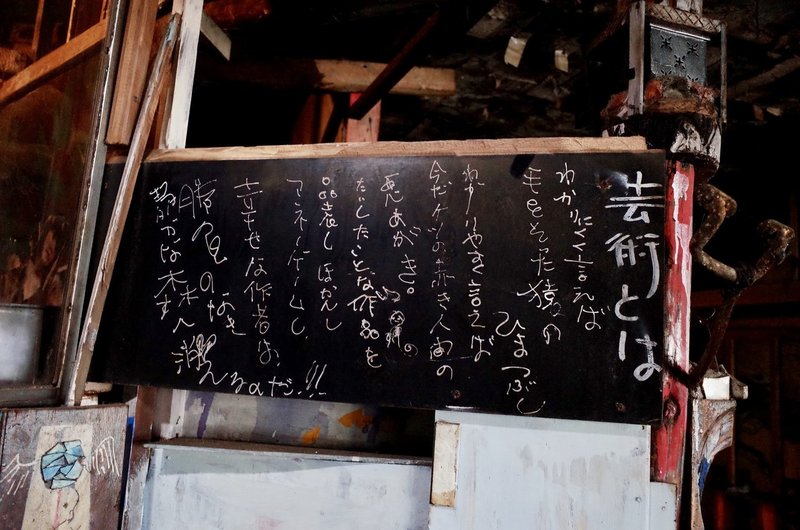 芸術とは
わかりにくく言えば
毛をそった猿の
ひまつぶし
わかりやすく言えば
今だケツの赤き人間の
悪あがき。
たいしたことな作品を
マネーゲームし
幸せな作者は、
勝負のなき
静かな森へ消えるのだ!!